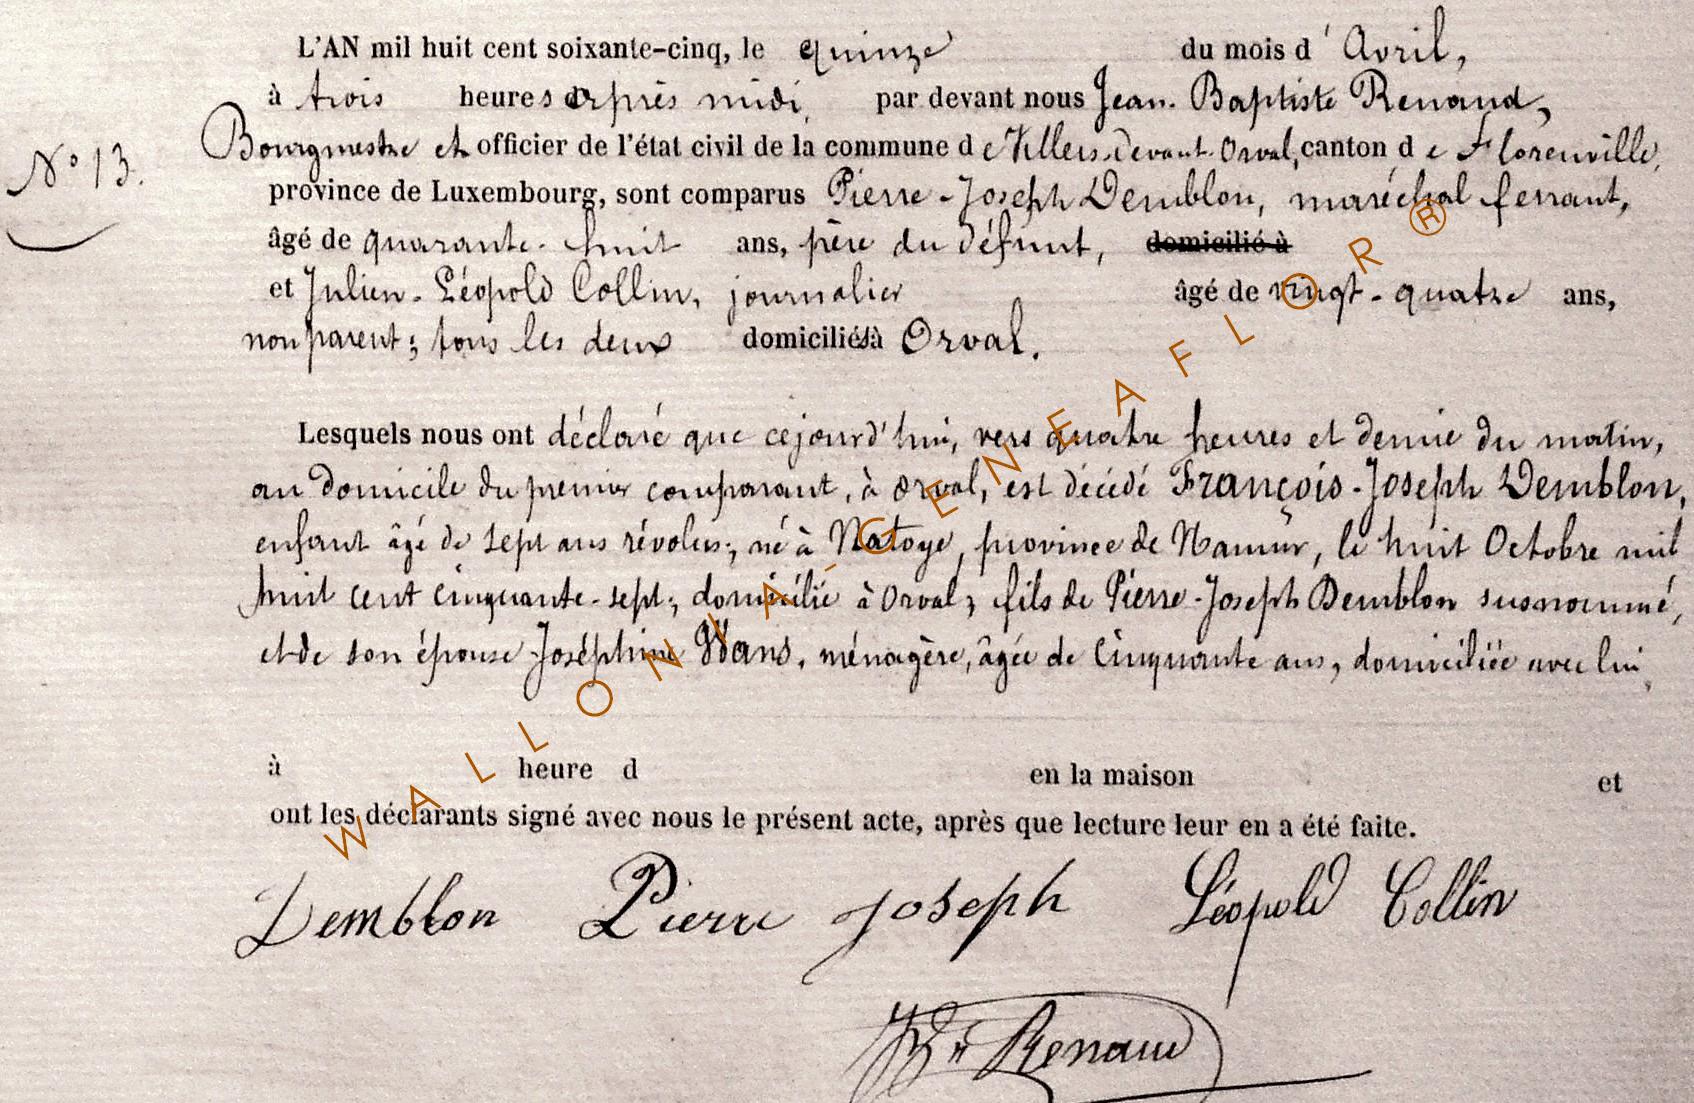 L'AN mil huit cent soixante-cinq, le quinze du mois d'Avril,
à trois heures après midi, par devant nous Jean-Baptiste Renaud,
N° 13. Bourgmestre et officier de l'état civil de la commune de Villers-devant-Orval, canton de Florenville,
province de Luxembourg, sont comparus Pierre-Joseph Demblon, maréchal ferrant,
âgé de quarante-huit ans, père du défunt, domicilié à
et Julien-Léopold Collin, journalier âgé de vingt-quatre ans,
non parent; tous les deux domiciliés à Orval.
Lesquels nous ont déclaré que cejourd'hui, vers quatre heures et demie du matin,
au domicile du premier comparant, à Orval, est décédé François-Joseph Demblon,
enfant âgé de sept ans révolus; né à Natoye, province de Namur, le huit Octobre mil
huit cent cinquante-sept; domicilié à Orval; fils de Pierre-Joseph Demblon susnommé,
et de son épouse Joséphine Wans, ménagère, âgée de Cinquante ans, domiciliée avec lui.
à heure d en la maison et
ont les déclarants signé avec nous le présent acte, après que lecture leur en a été faite.
Demblon Pierre Joseph Léopold Collin
Renaud
WALLONIA-GENEAFLOR®